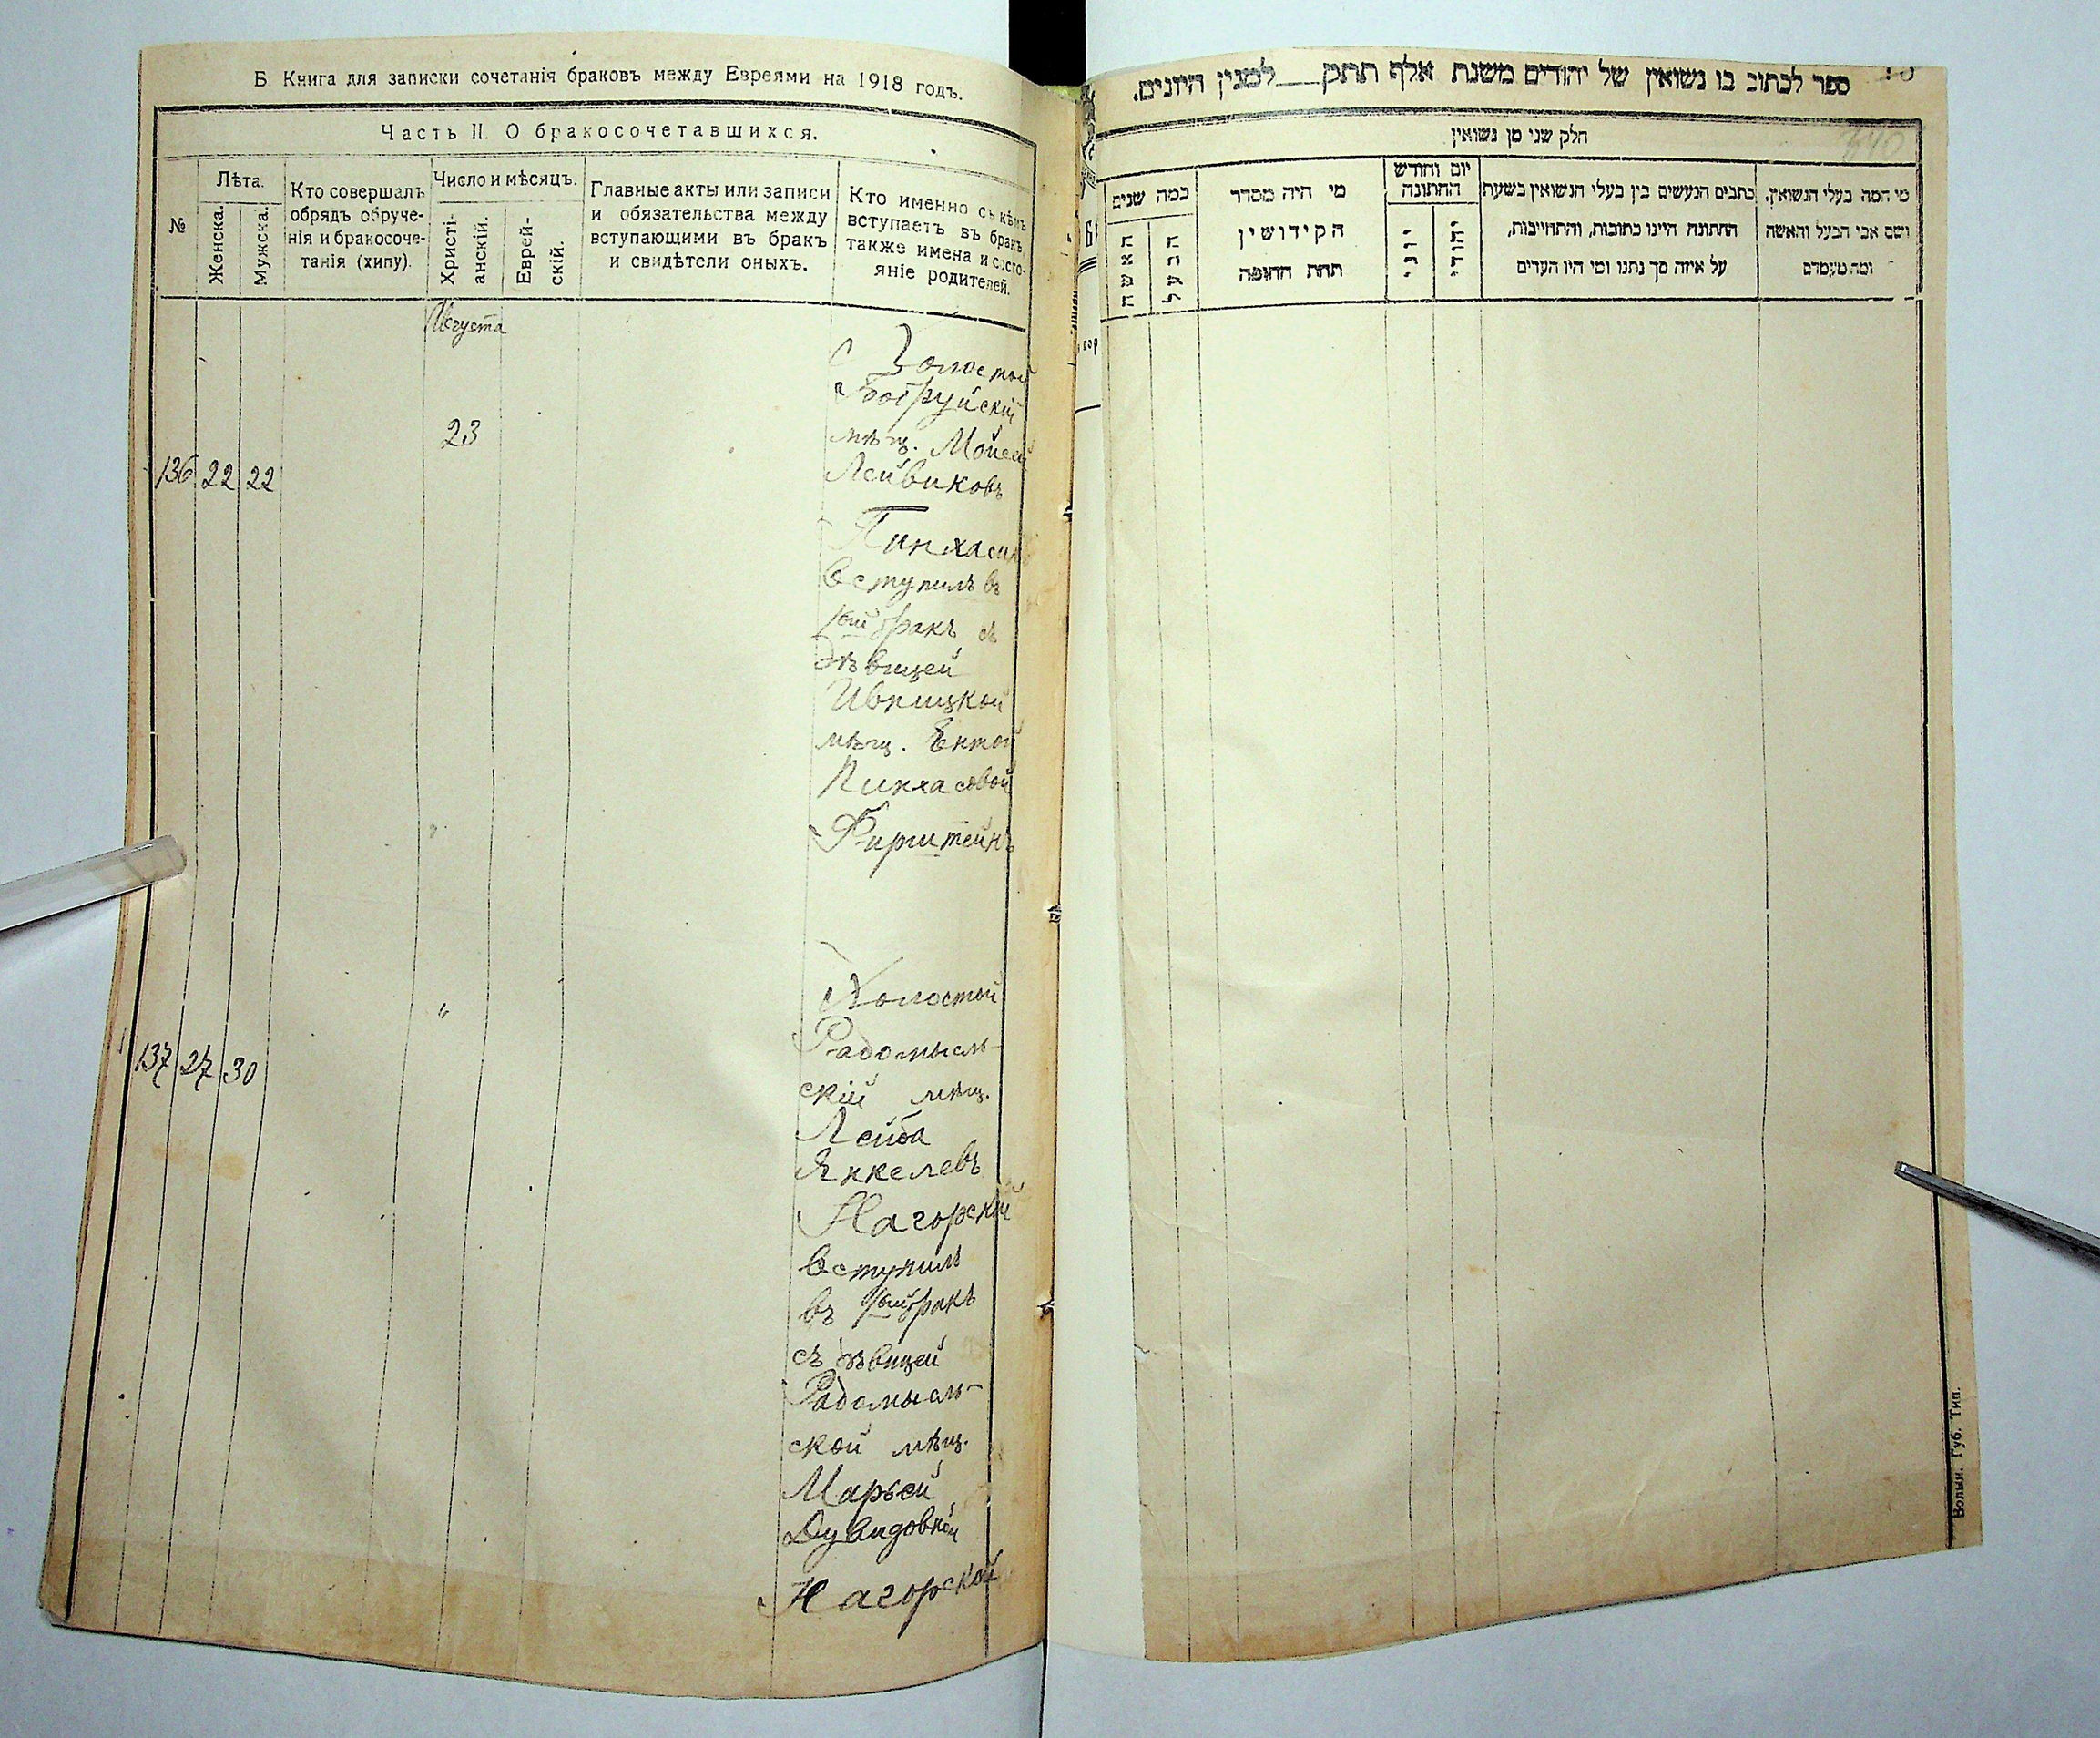 Б. Книга для записки сочетанія браковъ между Евреями на 1918 годъ.
Часть II. О бракосочетавшихся.
№
Лѣта.
Женска.
Мужска.
Кто совершалъ
обрядъ обруче-
нія и бракосоче-
танія (хипу).
Число и мѣсяцъ.
Христі-
анскій.
Еврей-
скій.
Главные акты или записи
и обязательства между
вступающими въ бракъ
и свидѣтели оныхъ.
Кто именно съ кѣмъ
вступаетъ въ бракъ
также имена и состо-
яніе родителей.
Августа
136 22 22
23
Холостой
Бобруйскій
мѣщ. Мойсей
Лейвиковъ
Пинхасикъ
вступилъ въ
1ый бракъ съ
дѣвицей
Ивницкой
мѣщ. Ентой
Пинхасовой
Фирштейнъ
137 27 30
"
Холостой
Радомысль-
скій мѣщ.
Лейба
Янкелевъ
Нагорскій
вступилъ
въ 1ый бракъ
съ дѣвицей
Радомысль-
ской мѣщ.
Марьей
Дувидовной
Нагорской
ספר לכתוב בו נשואין של יהודים משנת אלף תתק___למנין היונים.
חלק שני מן נשואין
מי המה בעלי הנשואין.
ושם אבי הבעל והאשה
ומה מעמדם
כתבים הנעשים בין בעלי הנשואין בשעת
החתונה היינו כתובות, והתחייבות,
על איזה סך נתנו ומי היו העדים
יום וחודש
החתונה
יהודי
יוני
מי היה מסדר
הקידושין
תחת החופה
כמה שנים
הבעל
האשה
Волын. Губ. Тип.